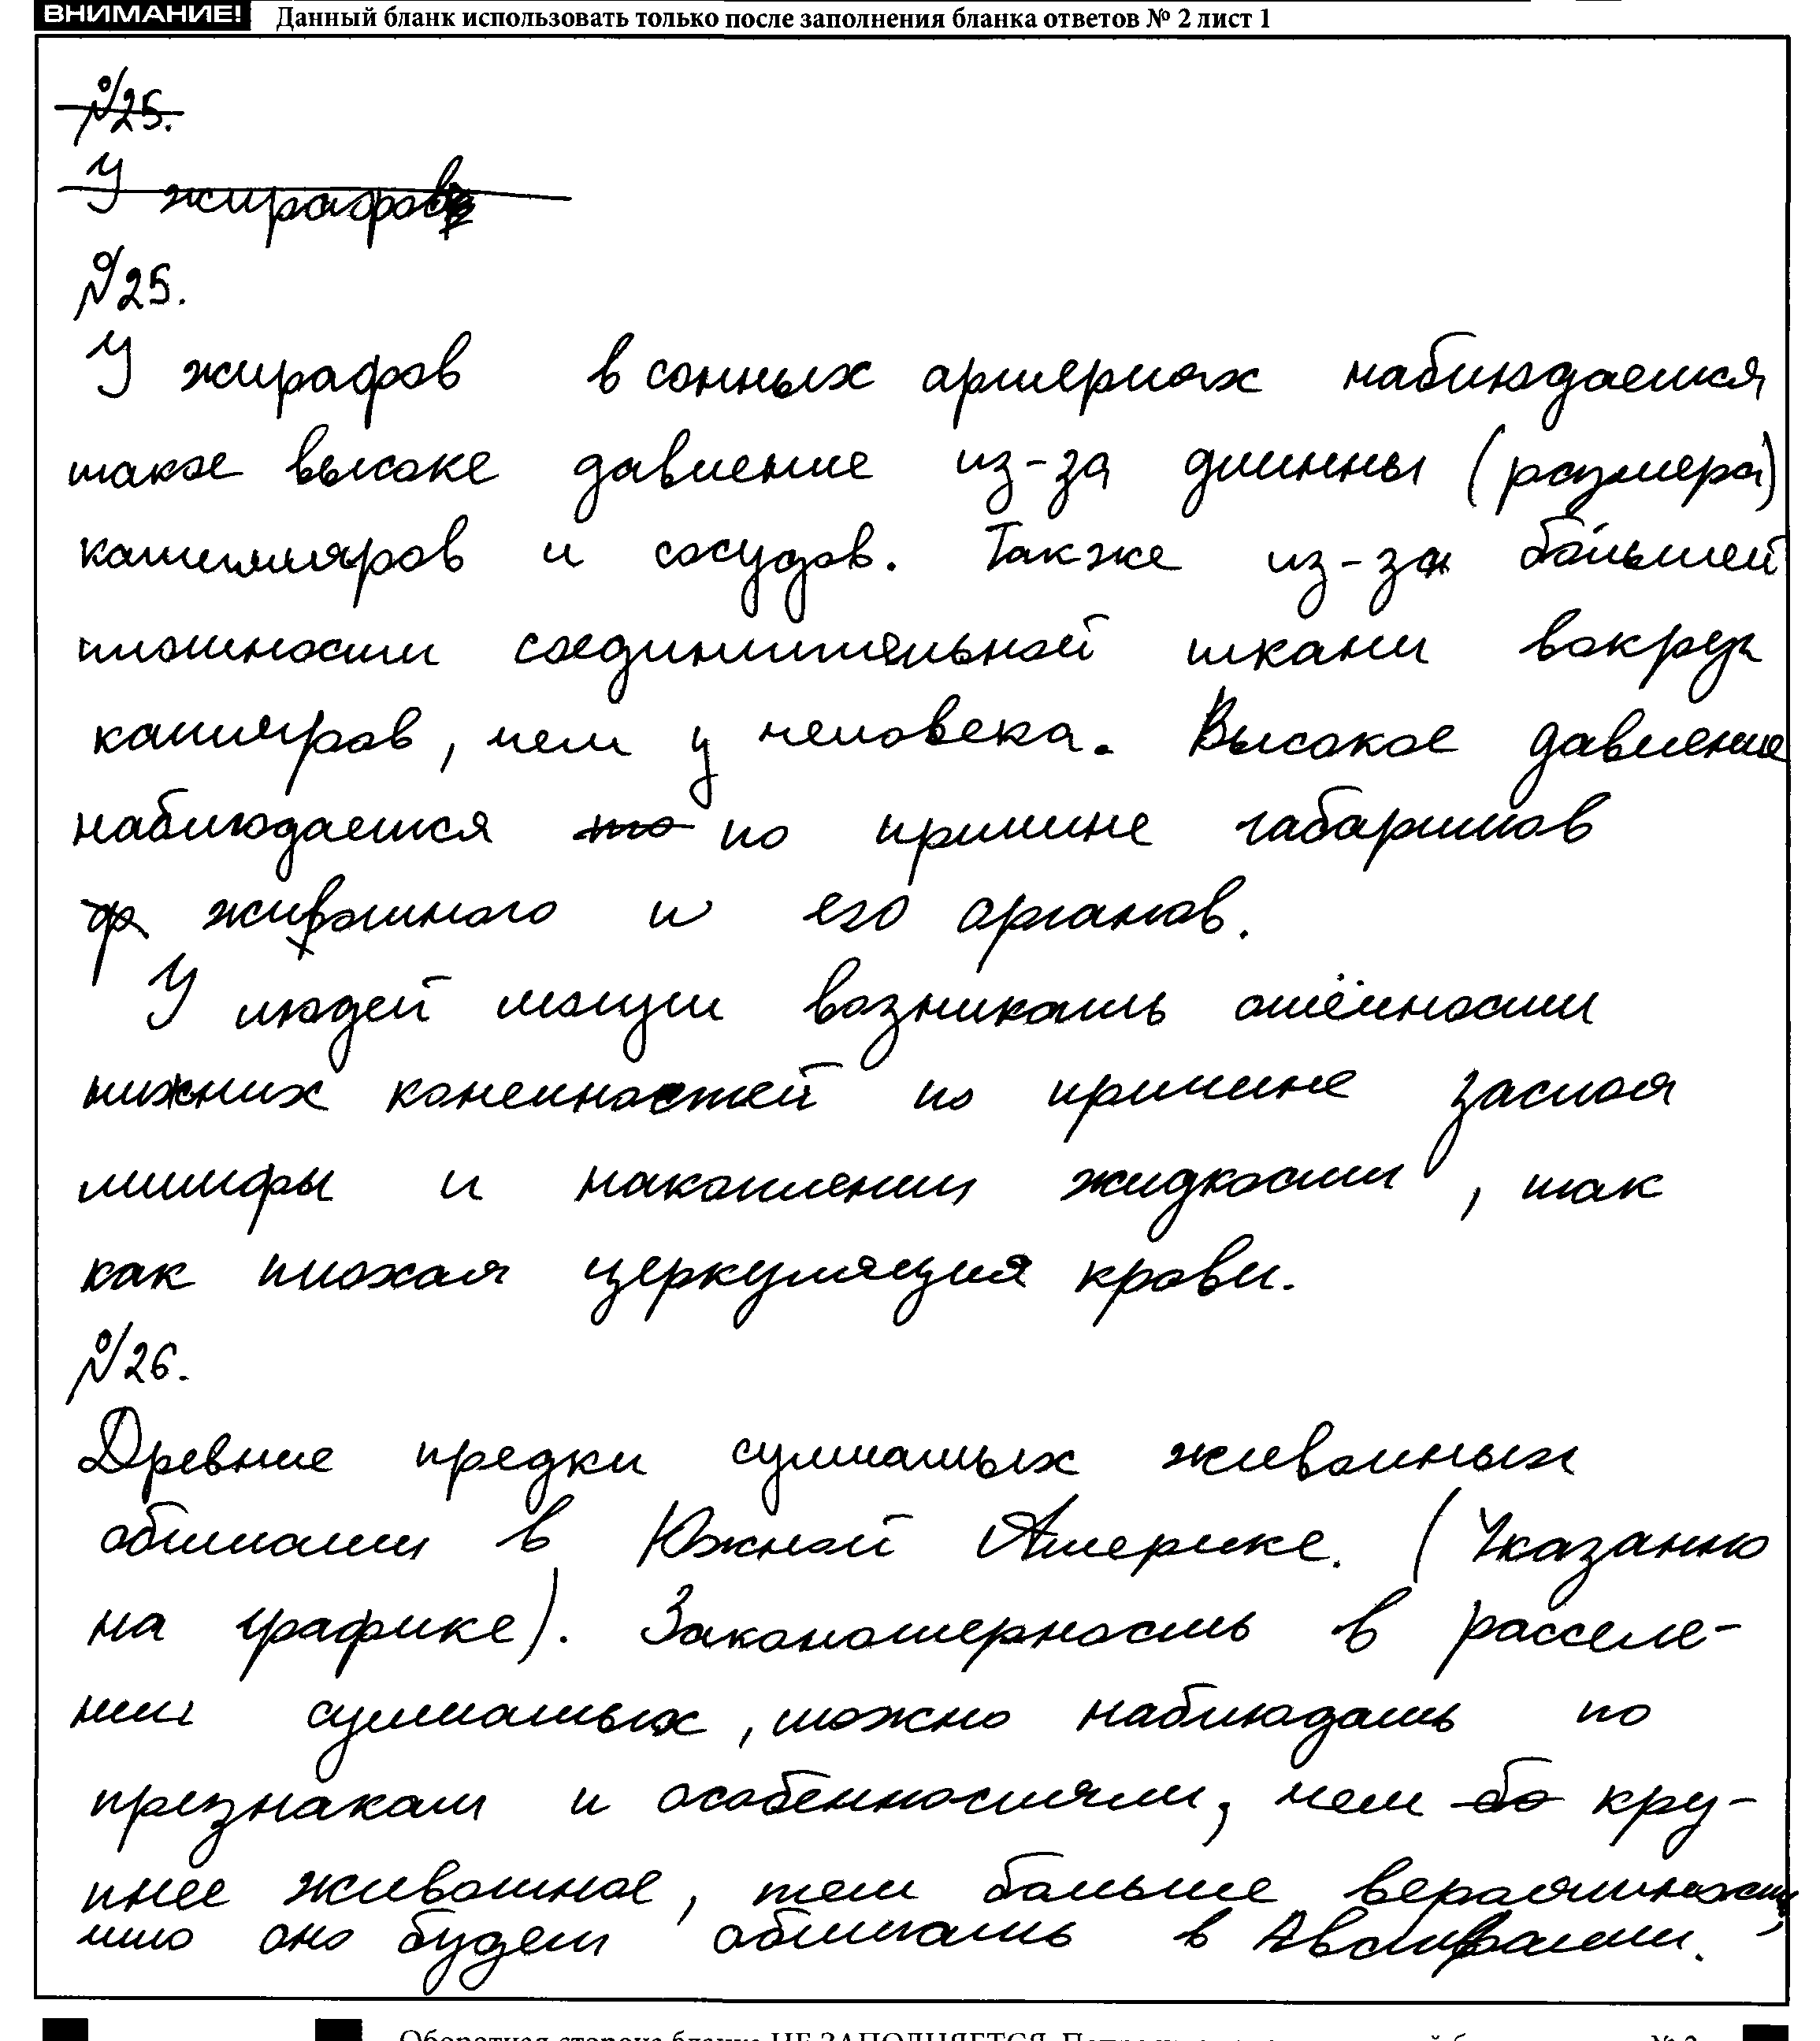 ВНИМАНИЕ! Данный бланк использовать только после заполнения бланка ответов № 2 лист 1
№25.
У жирафов
№25.
У жирафов в сонных артериях наблюдается
такое высоке давление из-за длинны (размера)
капилляров и сосудов. Также из-за большей
плотности соединительной ткани вокруг
капиляров, чем у человека. Высокое давление
наблюдается то по причине габаритов
животного и его органов.
У людей могут возникать отёчности
нижних конечностей по причине застоя
лимфы и накоплении жидкости, так
как плохая церкуляция крови.
№26.
Древние предки сумчатых животных
обитали в Южной Америке. (Указанно
на графике). Закономерность в расселе-
нии сумчатых, можно наблюдать по
признакам и особенностям, чем бо кру-
пнее животное, тем больше вероятность,
что оно будет обитать в Австралии.
Оборотная сторона бланка НЕ ЗАПОЛНЯЕТСЯ.